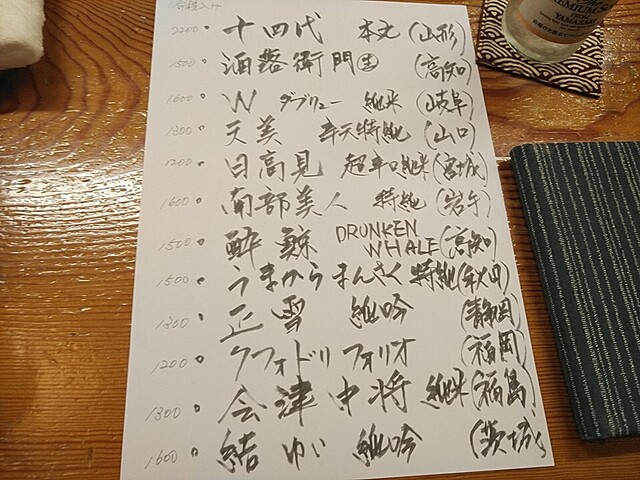 2200 十四代 本丸 (山形)
1500 酒落衛門 生 (高知)
1600 W ダブリュー 純米 (岐阜)
1300 天美 辛天特純 (山口)
1200 日高見 超辛口純米 (宮城)
1600 南部美人 特純 (岩手)
1500 酔鯨 DRUNKEN WHALE (高知)
1500 うまからまんさく 特純 (秋田)
1300 正雪 純吟 (静岡)
1200 クフォドリフォリオ (福岡)
1300 会津中将 純米 (福島)
1600 結ゆい 純吟 (茨城)
PREMIUM
FROM
YAMAZAKI